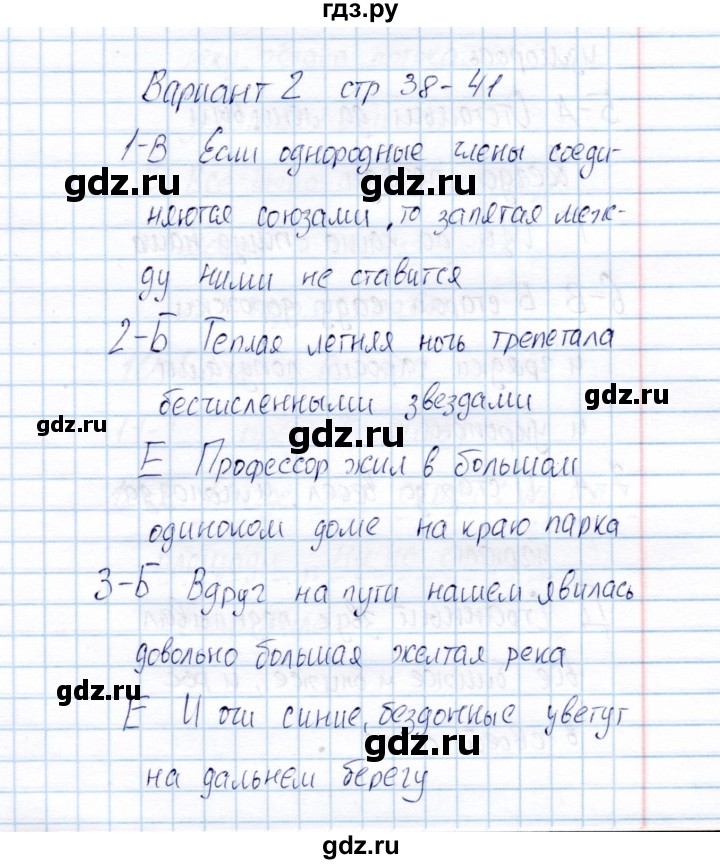 гдз.ру
Вариант 2 стр 38-41
1-В Если однородные члены соеди-
gdz.ru gdz.ru
няются союзами, то запятая меж-
ду ними не ставится
2-Б Теплая летняя ночь трепетала
бесчисленными звездами gdz.ru
gdz.ru gdz.ru
Е Профессор жил в большом
одиноком доме на краю парка
gdz.ru gdz.ru
3-Б Вдруг на пути нашем явилась
довольно большая желтая река
gdz.ru
Е И очи синие, бездонные цветут
gdz.ru
на дальнем берегу
gdz.ru